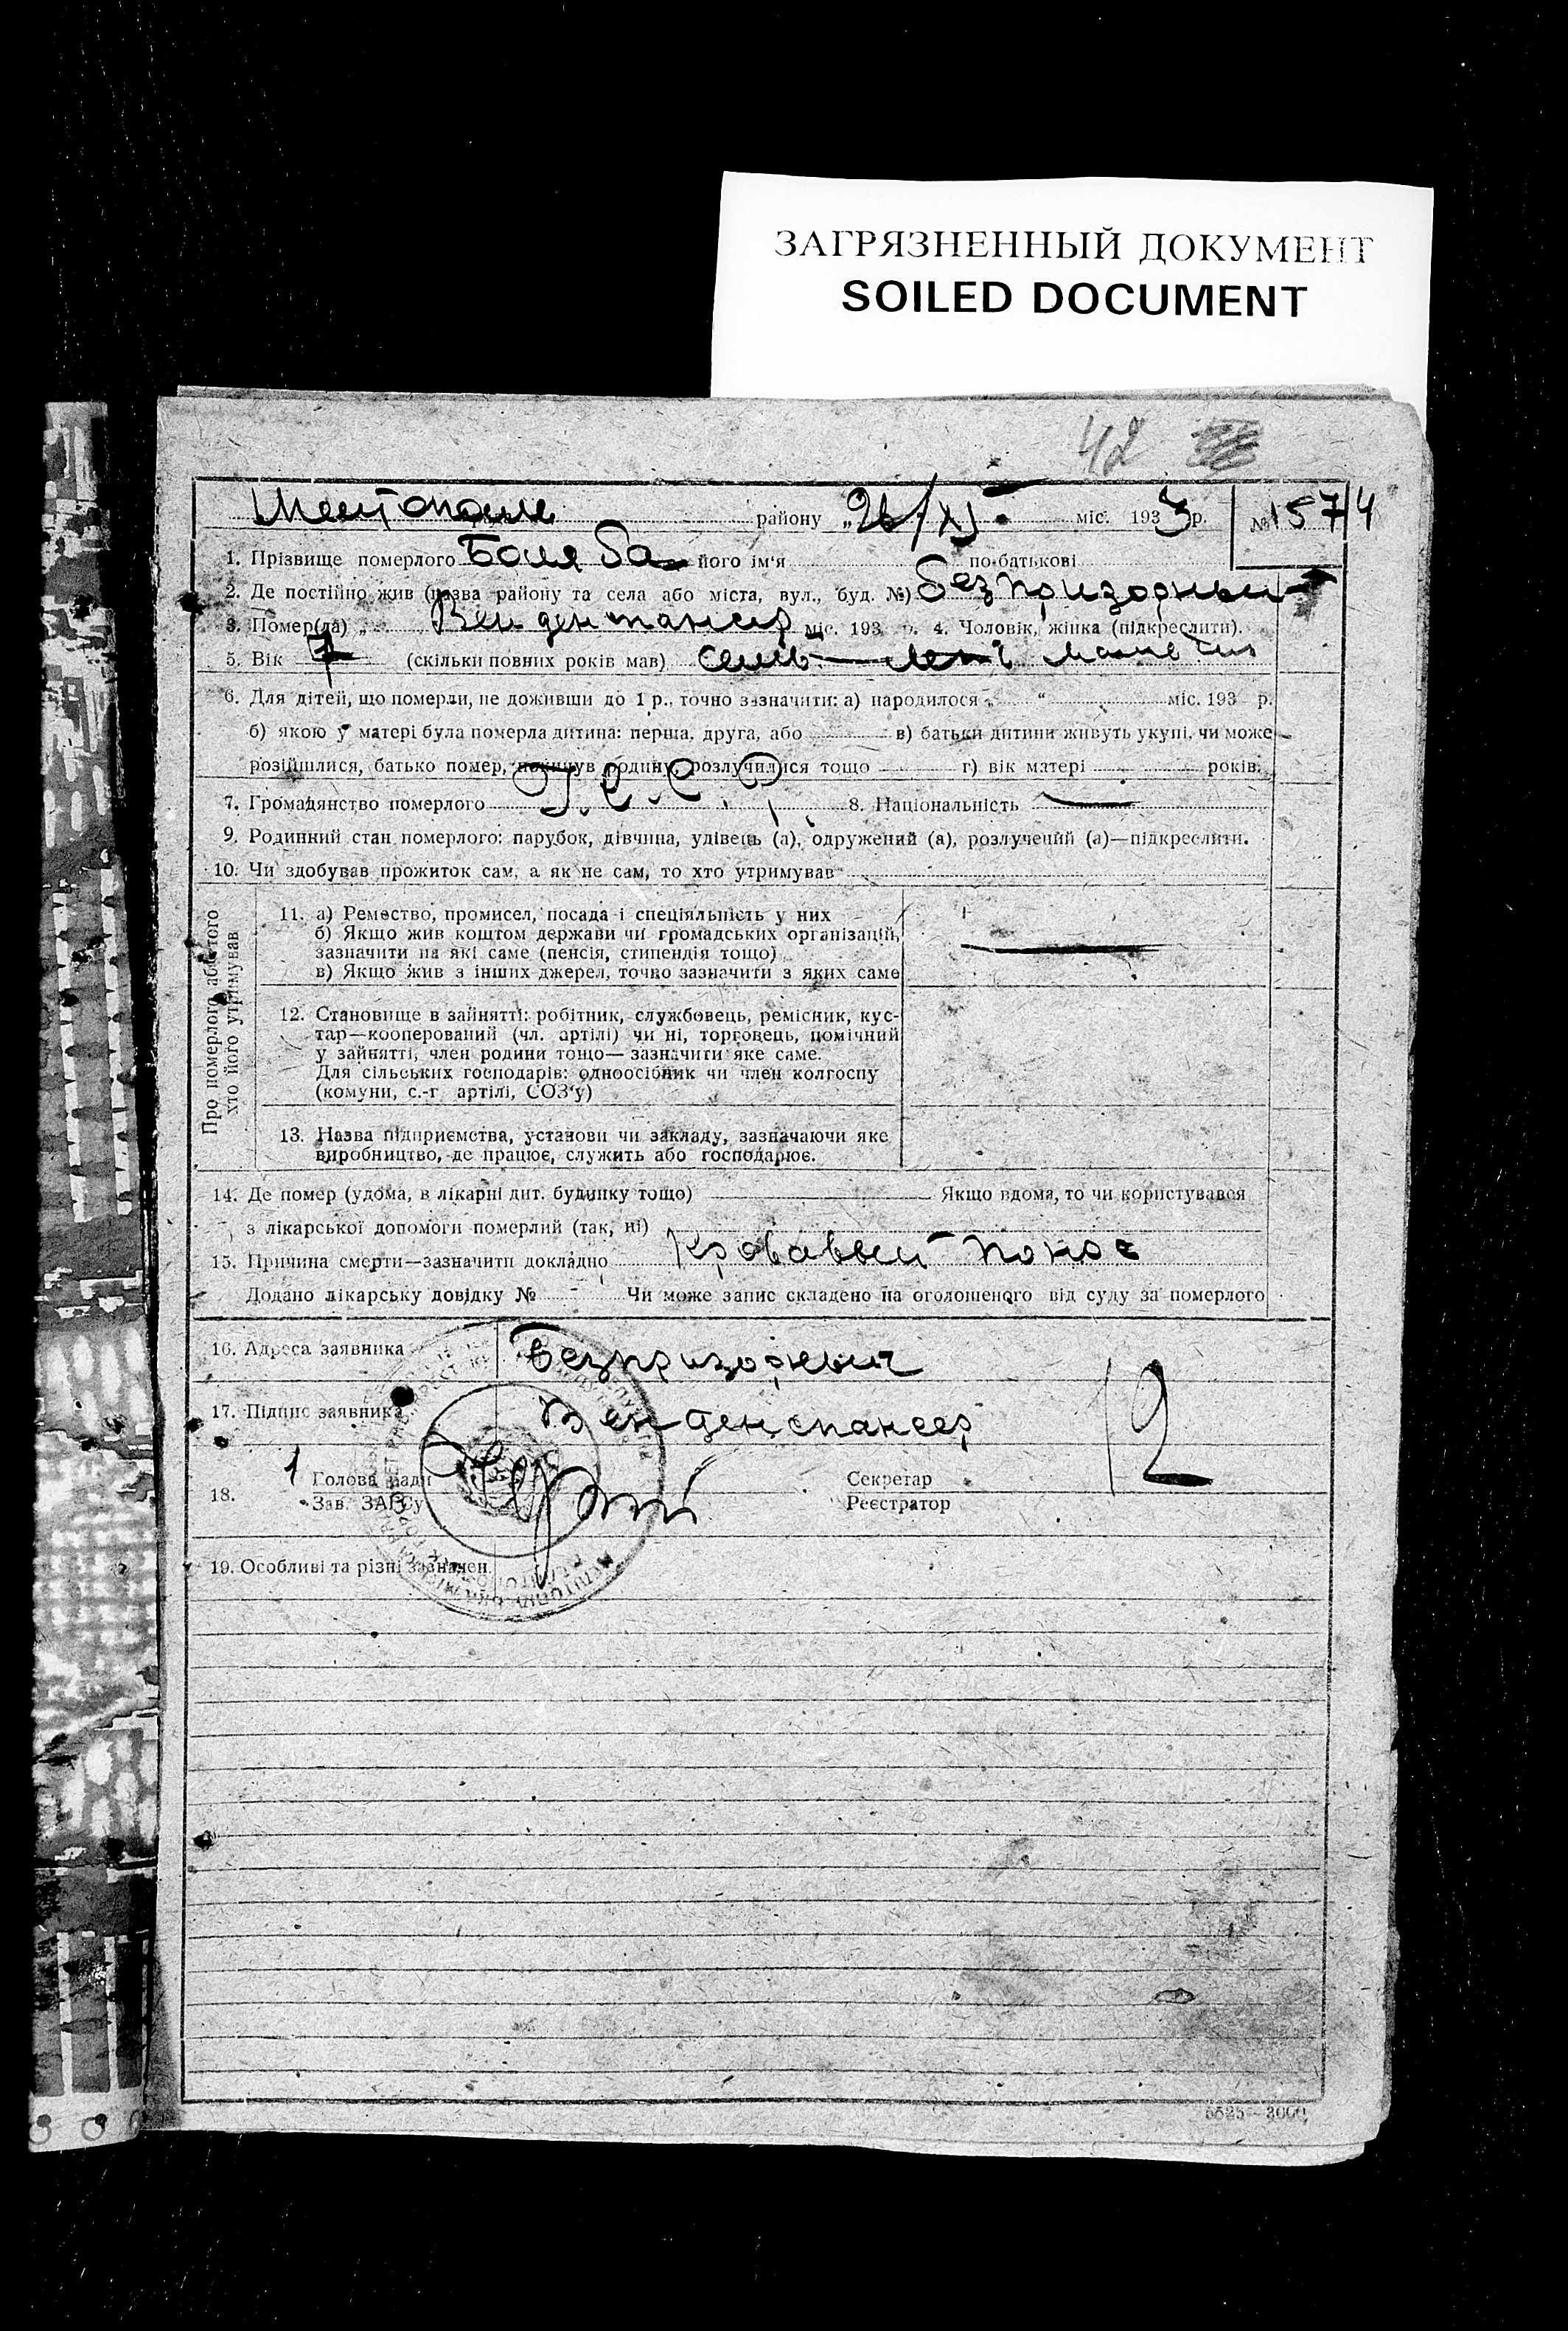 ЗАГРЯЗНЕННЫЙ ДОКУМЕНТ
SOILED DOCUMENT
42
району „26/XI міс. 1933 р. № 1574
1. Прізвище померлого його ім'я по-батькові
2. Де постійно жив (назва району та села або міста, вул., буд. №) безпризорный
3. Помер(ла) „ Венденспансер міс. 193 р. 4. Чоловік, жінка (підкреслити).
5. Вік 7 (скільки повних років мав) семь лет
6. Для дітей, що померли, не доживши до 1 р., точно зазначити: а) народилося „ “ міс. 193 р.
б) якою у матері була померла дитина: перша, друга, або в) батьки дитини живуть укупі, чи може
розійшлися, батько помер, покинув родину, розлучилися тощо г) вік матері років.
7. Громадянство померлого 8. Національність —
9. Родинний стан померлого: парубок, дівчина, удівець (а), одружений (а), розлучений (а)—підкреслити.
10. Чи здобував прожиток сам, а як не сам, то хто утримував
Про померлого або того
хто його утримував
11. а) Ремество, промисел, посада і спеціяльність у них
б) Якщо жив коштом держави чи громадських організацій,
зазначити на які саме (пенсія, стипендія тощо)
в) Якщо жив з інших джерел, точно зазначити з яких саме
12. Становище в зайнятті: робітник, службовець, ремісник, кус-
тар—кооперований (чл. артілі) чи ні, торговець, помічний
у зайнятті, член родини тощо— зазначити яке саме.
Для сільських господарів: одноосібник чи член колгоспу
(комуни, с.-г артілі, СОЗ'у)
13. Назва підприємства, установи чи закладу, зазначаючи яке
виробництво, де працює, служить або господарює.
14. Де помер (удома, в лікарні дит. будинку тощо) Якщо вдома, то чи користувався
з лікарської допомоги померлий (так, ні)
15. Причина смерти—зазначити докладно Кровавый понос
Додано лікарську довідку № Чи може запис складено на оголошеного від суду за померлого
16. Адреса заявника Безпризорный
17. Підпис заявника Венденспансер
12
18. Голова ради Секретар
Зав. ЗАГСу Реєстратор
19. Особливі та різні зазначен.
5525—3000